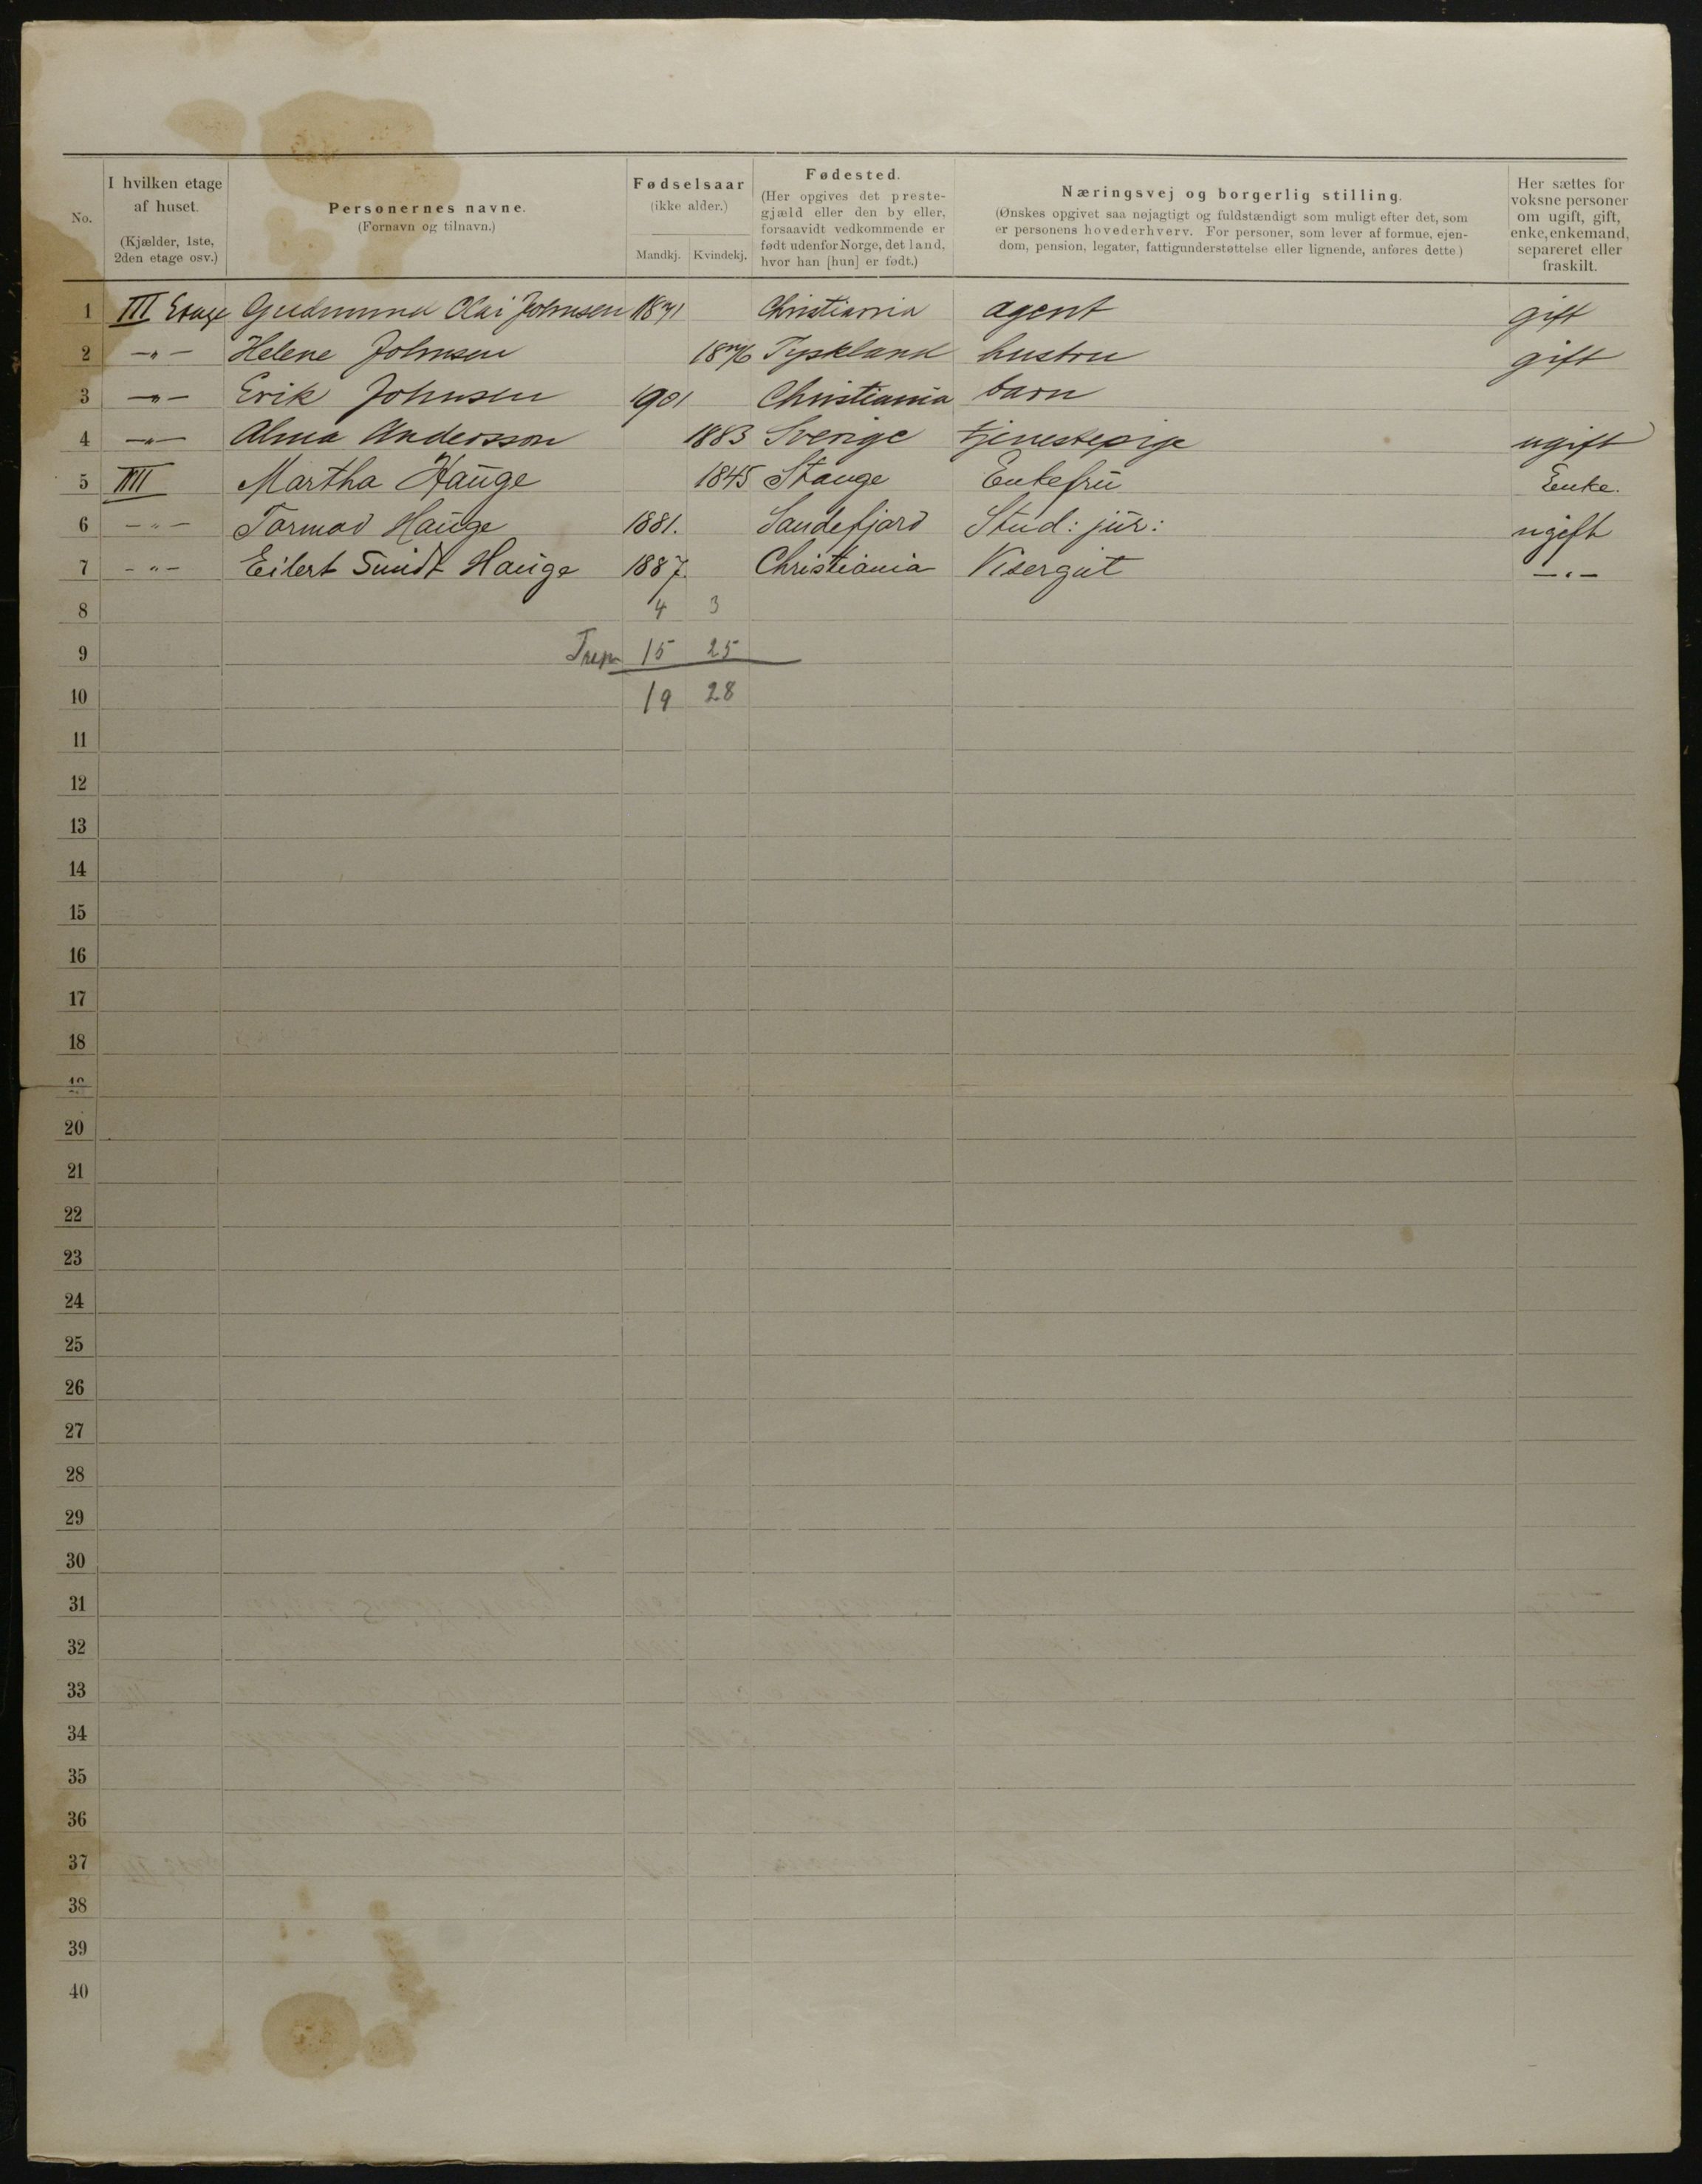 No. | I hvilken etage af huset. (Kjælder, 1ste, 2den etage osv.) | Personernes navne. (Fornavn og tilnavn.) | Fødselsaar (ikke alder.) Mandkj. | Kvindekj. | Fødested. (Her opgives det prestegjæld eller den by eller, forsaavidt vedkommende er født udenfor Norge, det land, hvor han [hun] er født.) | Næringsvej og borgerlig stilling. (Ønskes opgivet saa nøjagtigt og fuldstændigt som muligt efter det, som er personens hovederhverv. For personer, som lever af formue, ejendom, pension, legater, fattigunderstøttelse eller lignende, anføres dette.) | Her sættes for voksne personer om ugift, gift, enke, enkemand, separeret eller fraskilt.
1 III Etage Gudmund Olai Johnsen 1871 Christiania agent gift
2 -"- Helene Johnsen 1876 Tyskland hustru gift
3 -"- Erik Johnsen 1901 Christiania barn
4 -"- Alma Andersson 1883 Sverige tjenestepige ugift
5 IIII Martha Hauge 1845 Stange Enkefru Enke.
6 -"- Tormod Hauge 1881. Sandefjord Stud: jur: ugift
7 -"- Eilert Sundt Hauge 1887. Christiania Visergut -"-
8 4 3
9 15 25
10 19 28
11
12
13
14
15
16
17
18
19
20
21
22
23
24
25
26
27
28
29
30
31
32
33
34
35
36
37
38
39
40